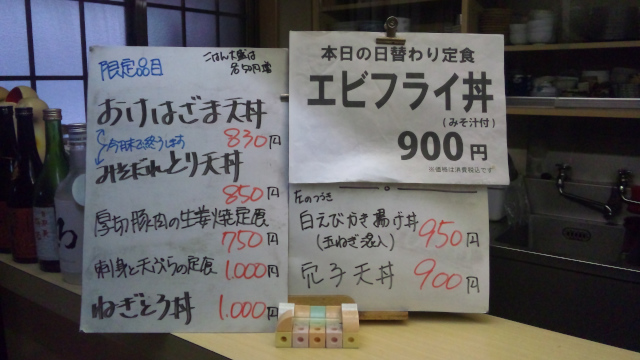 限定品目
ごはん大盛は
各50円増
おけはざま天丼
830円
今日本で終うします
みそだれとり天丼
850円
厚切豚肉の生姜焼定食
750円
刺身と天ぷらの定食 1.000円
ねぎとろ丼 1.000円
本日の日替わり定食
エビフライ丼
(みそ汁付)
900円
※価格は消費税込です
左のつづき
白えびかき揚げ丼
(玉ねぎ混入)
950円
穴子天丼 900円